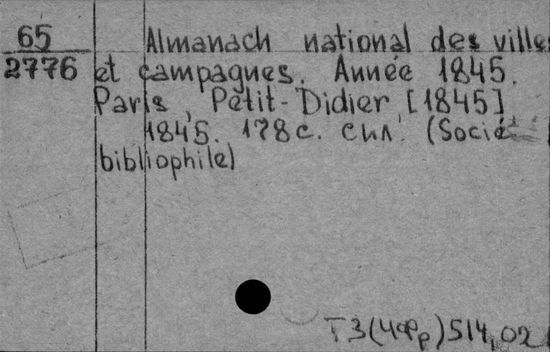 65
2776
Almanach national des ville
et campagnes. Année 1845.
Paris, Petit-Didier, [1845]
1845. 178 с. сил. (Socié
bibliophile)
T3(4Фр)514,02